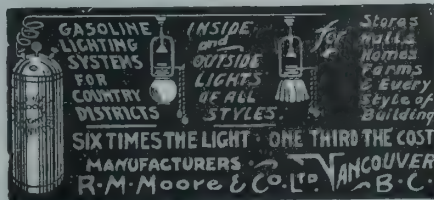 GASOLINE
LIGHTING
SYSTEMS
FOR
COUNTRY
DISTRICTS
INSIDE
and
OUTSIDE
LIGHTS
OF ALL
STYLES.
for
Stores
Halls
Homes
Farms
& Every
Style of
Building
SIX TIMES THE LIGHT - ONE THIRD THE COST
MANUFACTURERS
R.M. Moore & Co. LTD. VANCOUVER
B.C.